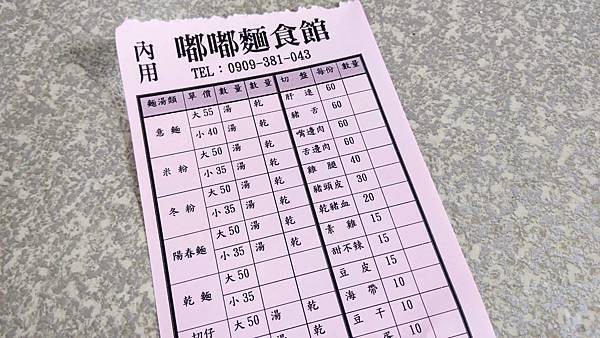 內用
嘟嘟麵食館
TEL：0909-381-043
麵湯類 單價 數量 數量 切盤 每份 數量
意麵 大55 湯 乾 肝連 60
小40 湯 乾 豬舌 60
米粉 大50 湯 嘴邊肉 60
小35 湯 舌邊肉 60
冬粉 大50 湯 雞腿 40
小35 湯 乾 豬頭皮 30
陽春麵 大50 湯 乾 乾豬血 20
小35 湯 乾 素雞 15
乾麵 大50 甜不辣 15
小35 豆皮 15
切仔 大50 湯 乾 海帶 10
乾 豆干 10
10